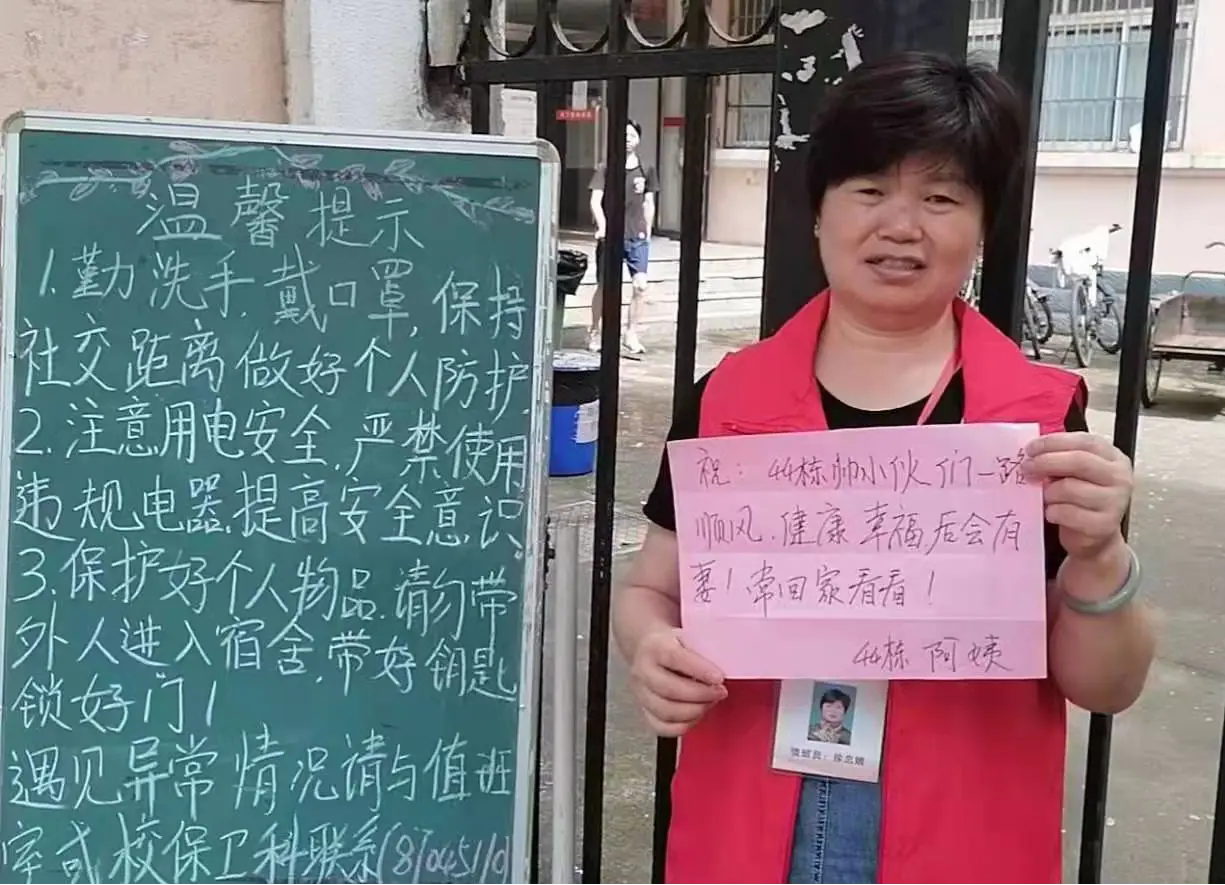 温馨提示
1.勤洗手,戴口罩,保持
社交距离做好个人防护.
2.注意用电安全.严禁使用
违规电器.提高安全意识.
3.保护好个人物品.请勿带
外人进入宿舍.带好钥匙
锁好门!
遇见异常情况请与值班
室或校保卫科联系(81045110
祝：44栋帅小伙们一路
顺风.健康幸福后会有
妻!常回家看看!
44栋 阿姨
值班员: